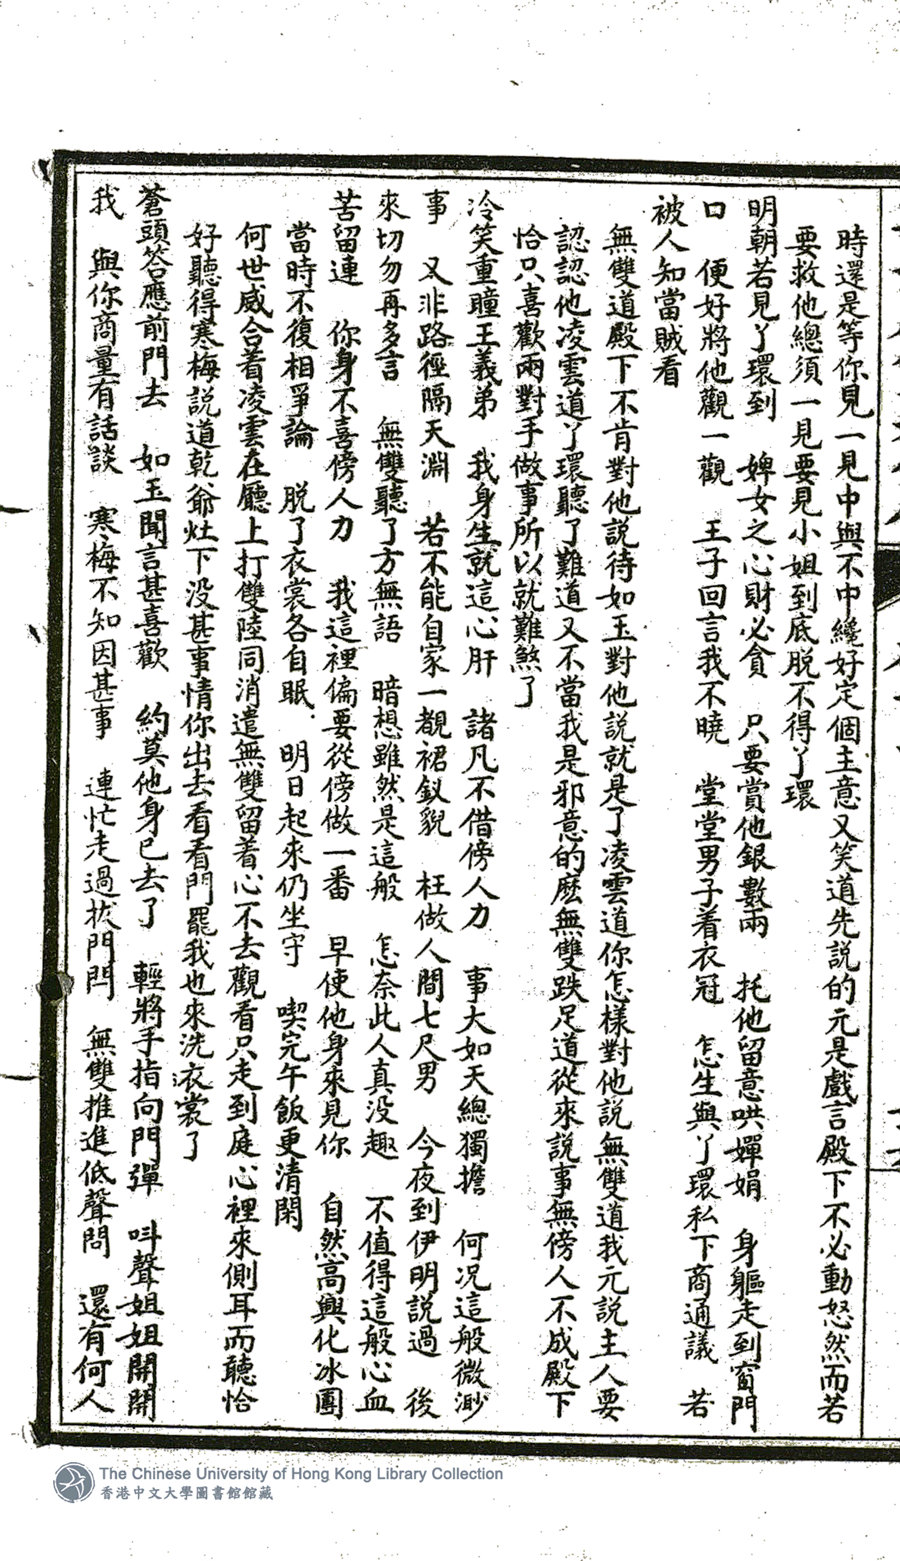 時還是等你見一見中與不中纔好定個主意又笑道先説的元是戲言殿下不必動怒然而若
要救他總須一見要見小姐到底脱不得丫環
明朝若見丫環到　婢女之心財必貪　只要賞他銀數兩　托他留意哄嬋娟　身軀走到窗門
口　便好將他觀一觀　王子回言我不曉　堂堂男子着衣冠　怎生與丫環私下商通議　若
被人知當賊看
無雙道殿下不肯對他説待如玉對他説就是了凌雲道你怎樣對他説無雙道我元説主人要
認認他凌雲道丫環聽了難道又不當我是邪意的麽無雙跌足道從來説事無傍人不成殿下
恰只喜歡兩對手做事所以就難煞了
冷笑重瞳王義弟　我身生就這心肝　諸凡不借傍人力　事大如天總獨擔　何况這般微渺
事　又非路徑隔天淵　若不能自家一覩裙釵貌　枉做人間七尺男　今夜到伊明説過　後
來切勿再多言　無雙聽了方無語　暗想雖然是這般　怎奈此人真没趣　不值得這般心血
苦留連　你身不喜傍人力　我這裡偏要從傍做一番　早使他身來見你　自然高興化冰團
當時不復相爭論　脱了衣裳各自眠　明日起來仍坐守　喫完午飯更清閑
何世威合着凌雲在廳上打雙陸同消遣無雙留着心不去觀看只走到庭心裡來側耳而聽恰
好聽得寒梅説道乾爺灶下没甚事情你出去看看門罷我也來洗衣裳了
蒼頭答應前門去　如玉聞言甚喜歡　約莫他身已去了　輕將手指向門彈　呌聲姐姐開開
我　與你商量有話談　寒梅不知因甚事　連忙走過拔門閂　無雙推進低聲問　還有何人
The Chinese University of Hong Kong Library Collection
香港中文大學圖書館館藏